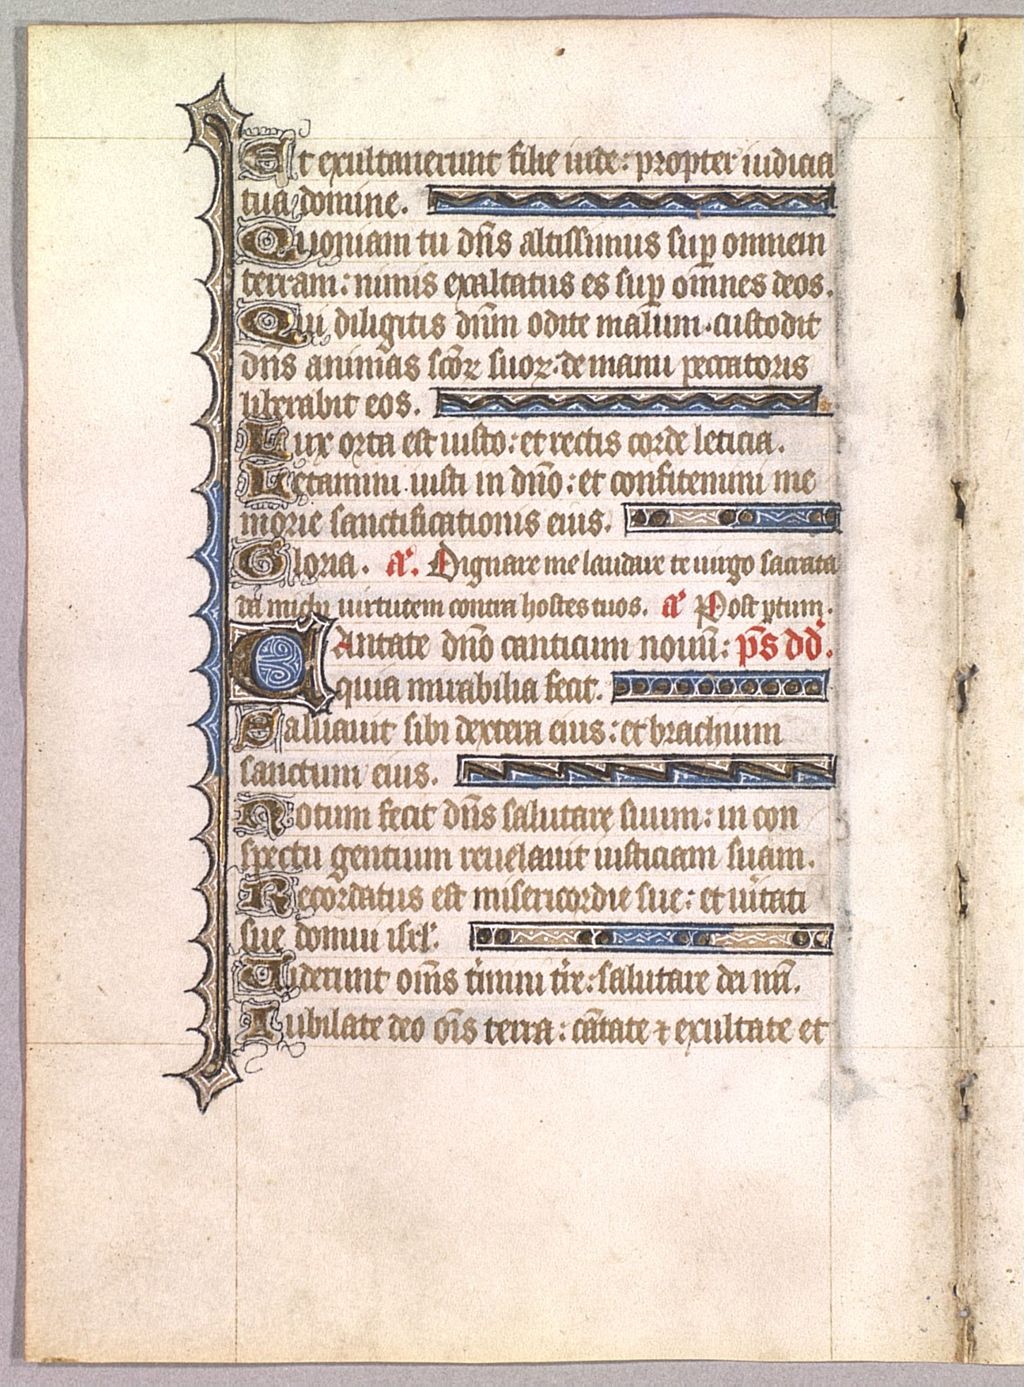 Et exultauerunt filie iude: propter iudicia
tua domine.
Quoniam tu dn̄s altissimus sup̱ omnem
terram: nimis exaltatus es sup̱ om̄nes deos.
Qui diligitis dn̄m odite malum. custodit
dn̄s animas sc̄oꝝ suoꝝ. de manu peccatoris
liberabit eos.
Lux orta est iusto: et rectis corde leticia.
Letamini iusti in dn̄o: et confitemini me
morie sanctificationis eius.
Gloria. a᷒. Dignare me laudare te uirgo sacrata
da michi uirtutem contra hostes tuos. a᷒ Post ꝑtum.
Cantate dn̄o canticum nouū: ps̄ dd̄.
quia mirabilia fecit.
Saluauit sibi dextera eius: et brachium
sanctum eius.
Notum fecit dn̄s salutare suum: in con
spectu gentium reuelauit iusticiam suam.
Recordatus est misericordie sue: et ūitati
sue domui isrl̄.
Uiderunt om̄s t̄mini t̄re: salutare dei nr̄i.
Iubilate deo om̄s terra: cātate ⁊ exultate et